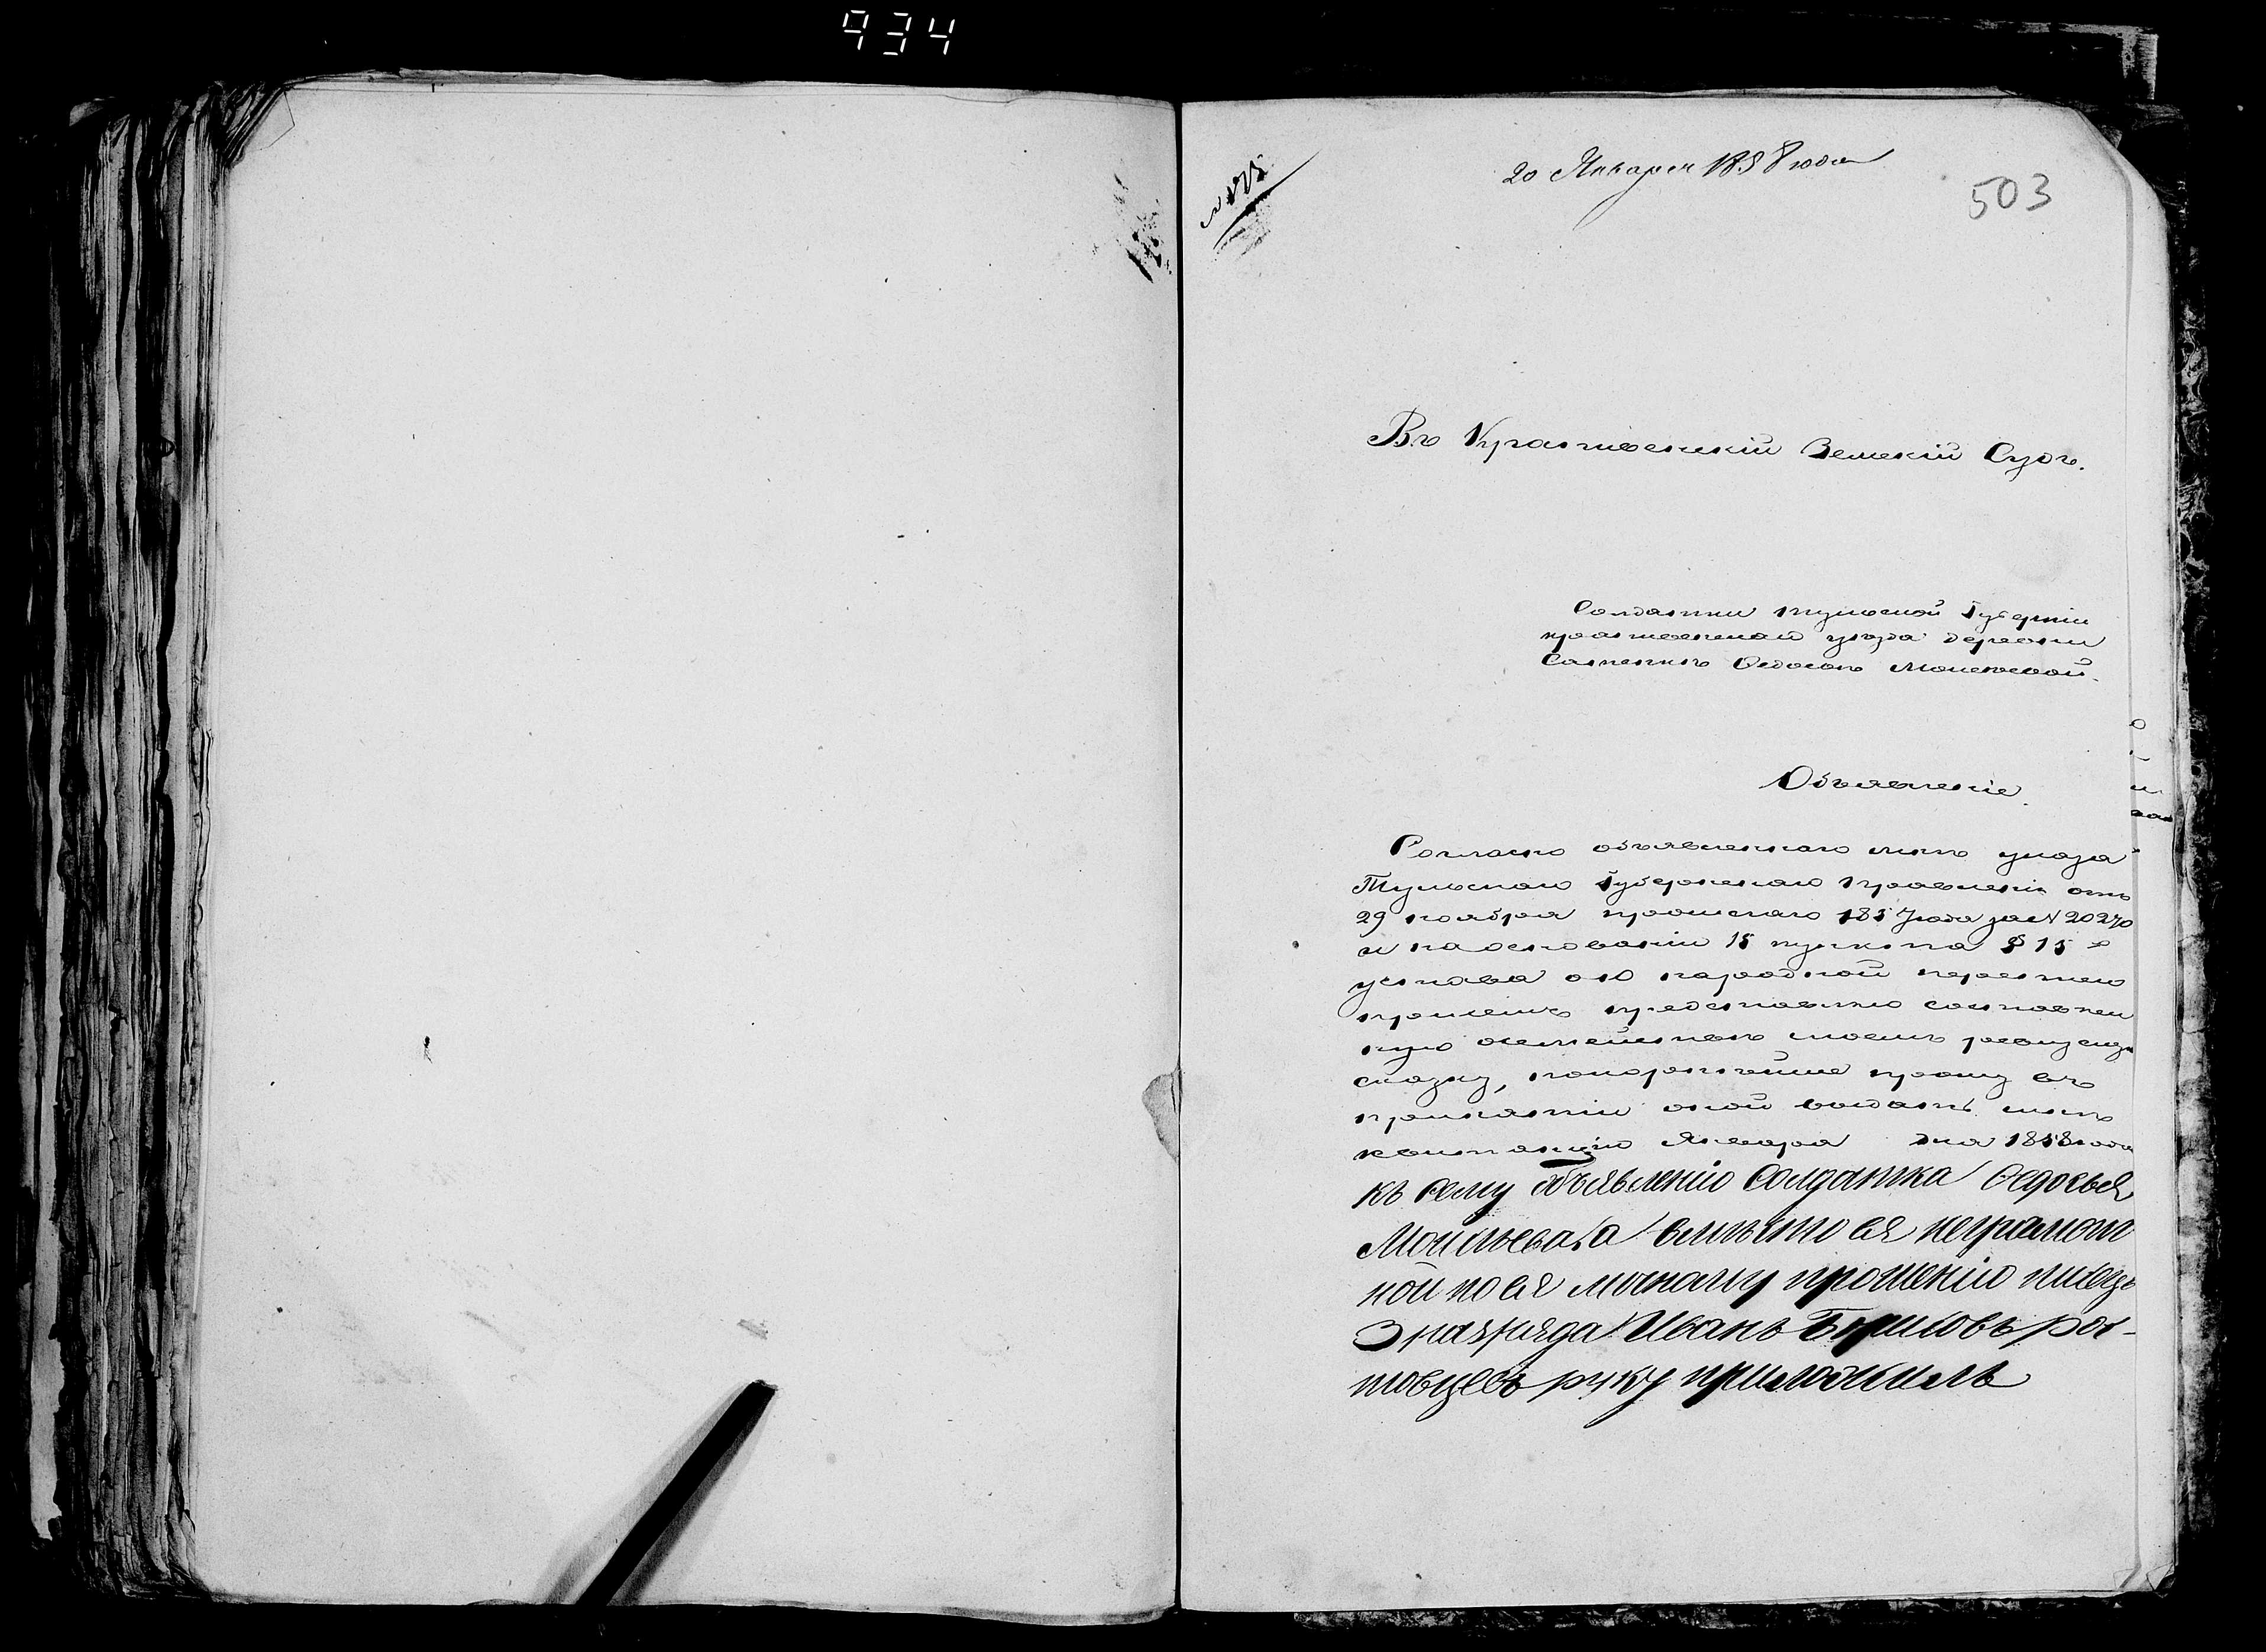 934
20 Января 1858 года
503
Въ Крапивенскій Земскій Судъ.
Солдатки Тульской Губерніи
крапивенской уезда деревни
Федосьи Моисеевой.
Объявленіе.
Согласно объявленнаго мнѣ указа
Тульскаго Губернскаго Правленія отъ
29 ноября прошлаго 1857 года за N 20270
и на основаніи 15 пункта § 15
устава о народной переписи
представляю составлен
ную о семействѣ моемъ ревизскую
сказку, покорнейше прошу въ
принятіи оной выдать мнѣ
квитанцію Января дня 1858 года
къ сему объявленію Солдатка Федосья
Моисьева а вмѣсто ея неграмот
ной по ея прошенію писецъ
3 разряда Иванъ рос-
товцевъ руку приложилъ